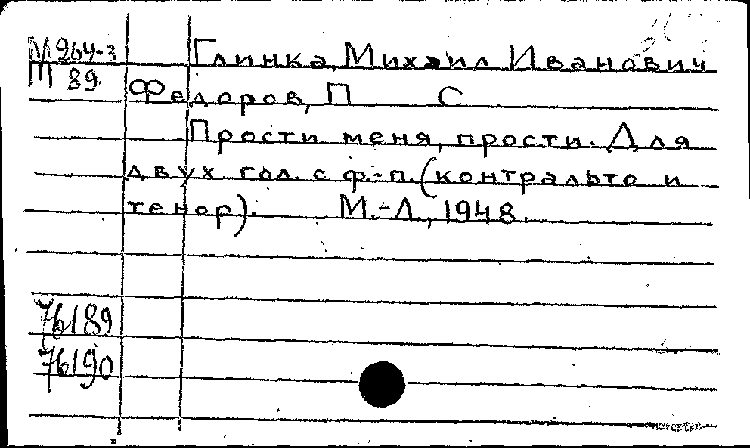 М964-3 Глинка, Михаил Иванович
89 Федоров, П С
Прости меня, прости. Для
двух гол. с ф.-п. (контральто и
тенор). М.-Л., 1948.
76189
76190